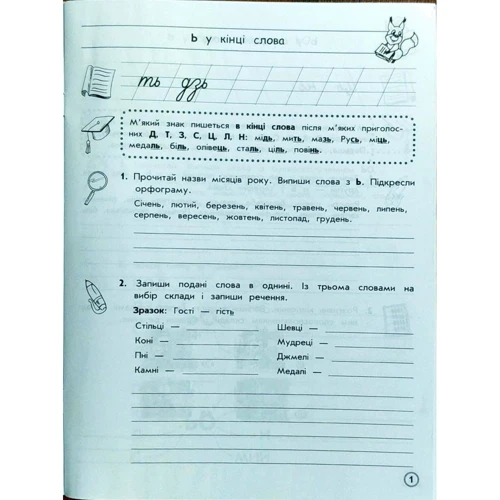 Ь у кінці слова
ть дзь
М'який знак пишеться в кінці слова після м'яких приголос-
них Д, Т, З, С, Ц, Л, Н: мідь, мить, мазь, Русь, міць,
медаль, біль, олівець, сталь, ціль, повінь.
1. Прочитай назви місяців року. Випиши слова з Ь. Підкресли
орфограму.
Січень, лютий, березень, квітень, травень, червень, липень,
серпень, вересень, жовтень, листопад, грудень.
2. Запиши подані слова в однині. Із трьома словами на
вибір склади і запиши речення.
Зразок: Гості — гість
Стільці — Шевці —
Коні — Мудреці —
Пні — Джмелі —
Камні — Медалі —
1